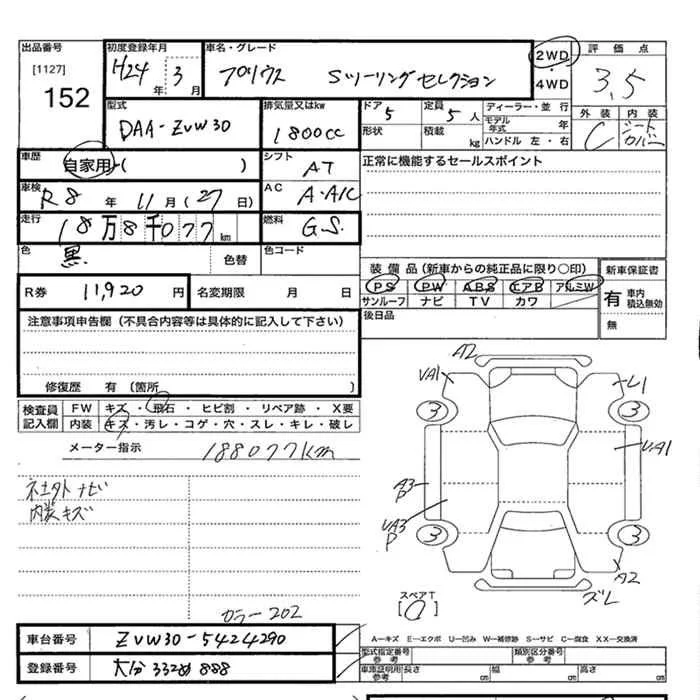 出品番号 初度登録年月 車名・グレード 2WD 評価点
[1127] H24 年 3 月 プリウス Sツーリングセレクション ・ 3.5
152 4WD
型式 排気量又はkw ドア 定員 ディーラー・並行 外装 内装
DAA-ZVW30 1800cc 5 5人 モデル年式 年 C シートカバー
形状 積載 kg ハンドル 左・右
車歴 自家用・( ) シフト AT 正常に機能するセールスポイント
車検 R8 年 11 月 (27 日) AC A・A/C
走行 18万8千077 km 燃料 G.S.
色 黒 色替 色コード
装備品(新車からの純正品に限り○印) 新車保証書
R券 11,920 円 名変期限 月 日 PS PW ABS エアB アルミW 有 車内積込無効
サンルーフ ナビ TV カワ
注意事項申告欄(不具合内容等は具体的に記入して下さい) 後日品 無
修復歴 有(箇所 )
検査員記入欄 FW キズ・飛石・ヒビ割・リペア跡・X要
内装 キズ・汚レ・コゲ・穴・スレ・キレ・破レ
メーター指示 188077km
内装キズ
A2
UA1 L1
3 3
UA1
A3
P
UA3
P
3 3
A2
ズレ
スペアT
カラー202
車台番号 ZVW30-5424290
A―キズ E―エクボ U―凹み W―補修跡 S―サビ C―腐食 XX―交換済
型式指定番号 参考 類別区分番号 参考
登録番号 大分 332 888
車庫証明用参考 長さ cm 幅 cm 高さ cm